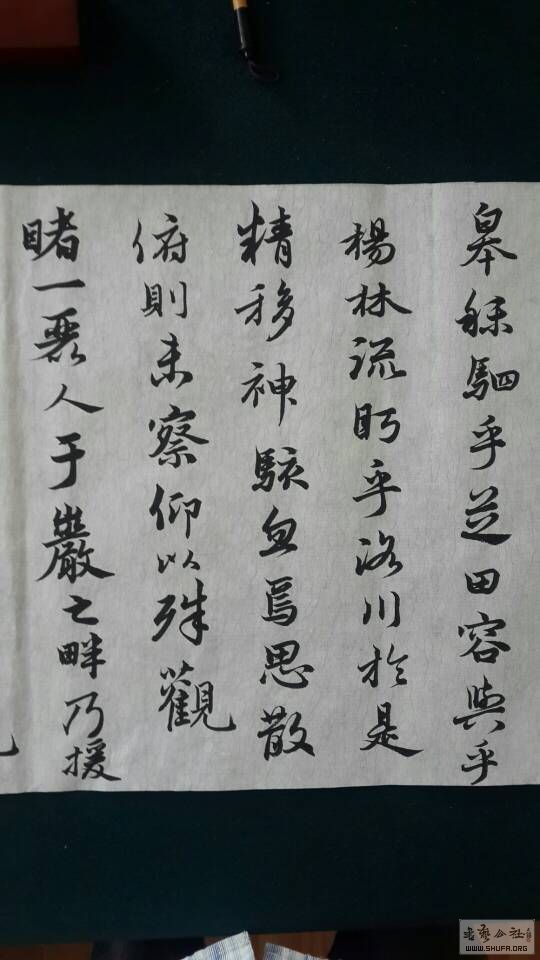 皋秣駟乎芝田容與乎
楊林流眄乎洛川於是
精移神駭忽焉思散
俯則未察仰以殊觀
睹一麗人于巖之畔乃援
书艺公社
WWW.SHUFA.ORG